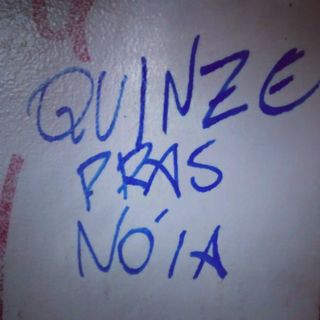 QUINZE
PRAS
NÓIA